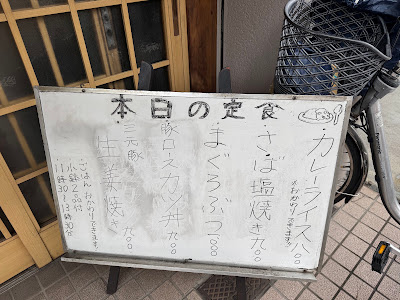 本日の定食
カレーライス 八〇〇
大もりできます
さば塩焼き 九〇〇
まぐろぶつ 一〇〇〇
豚ロースカツ丼 九〇〇
三元豚
生姜焼き 九〇〇
ごはん おかわりできます
小鉢2品付
11時30~13時30分